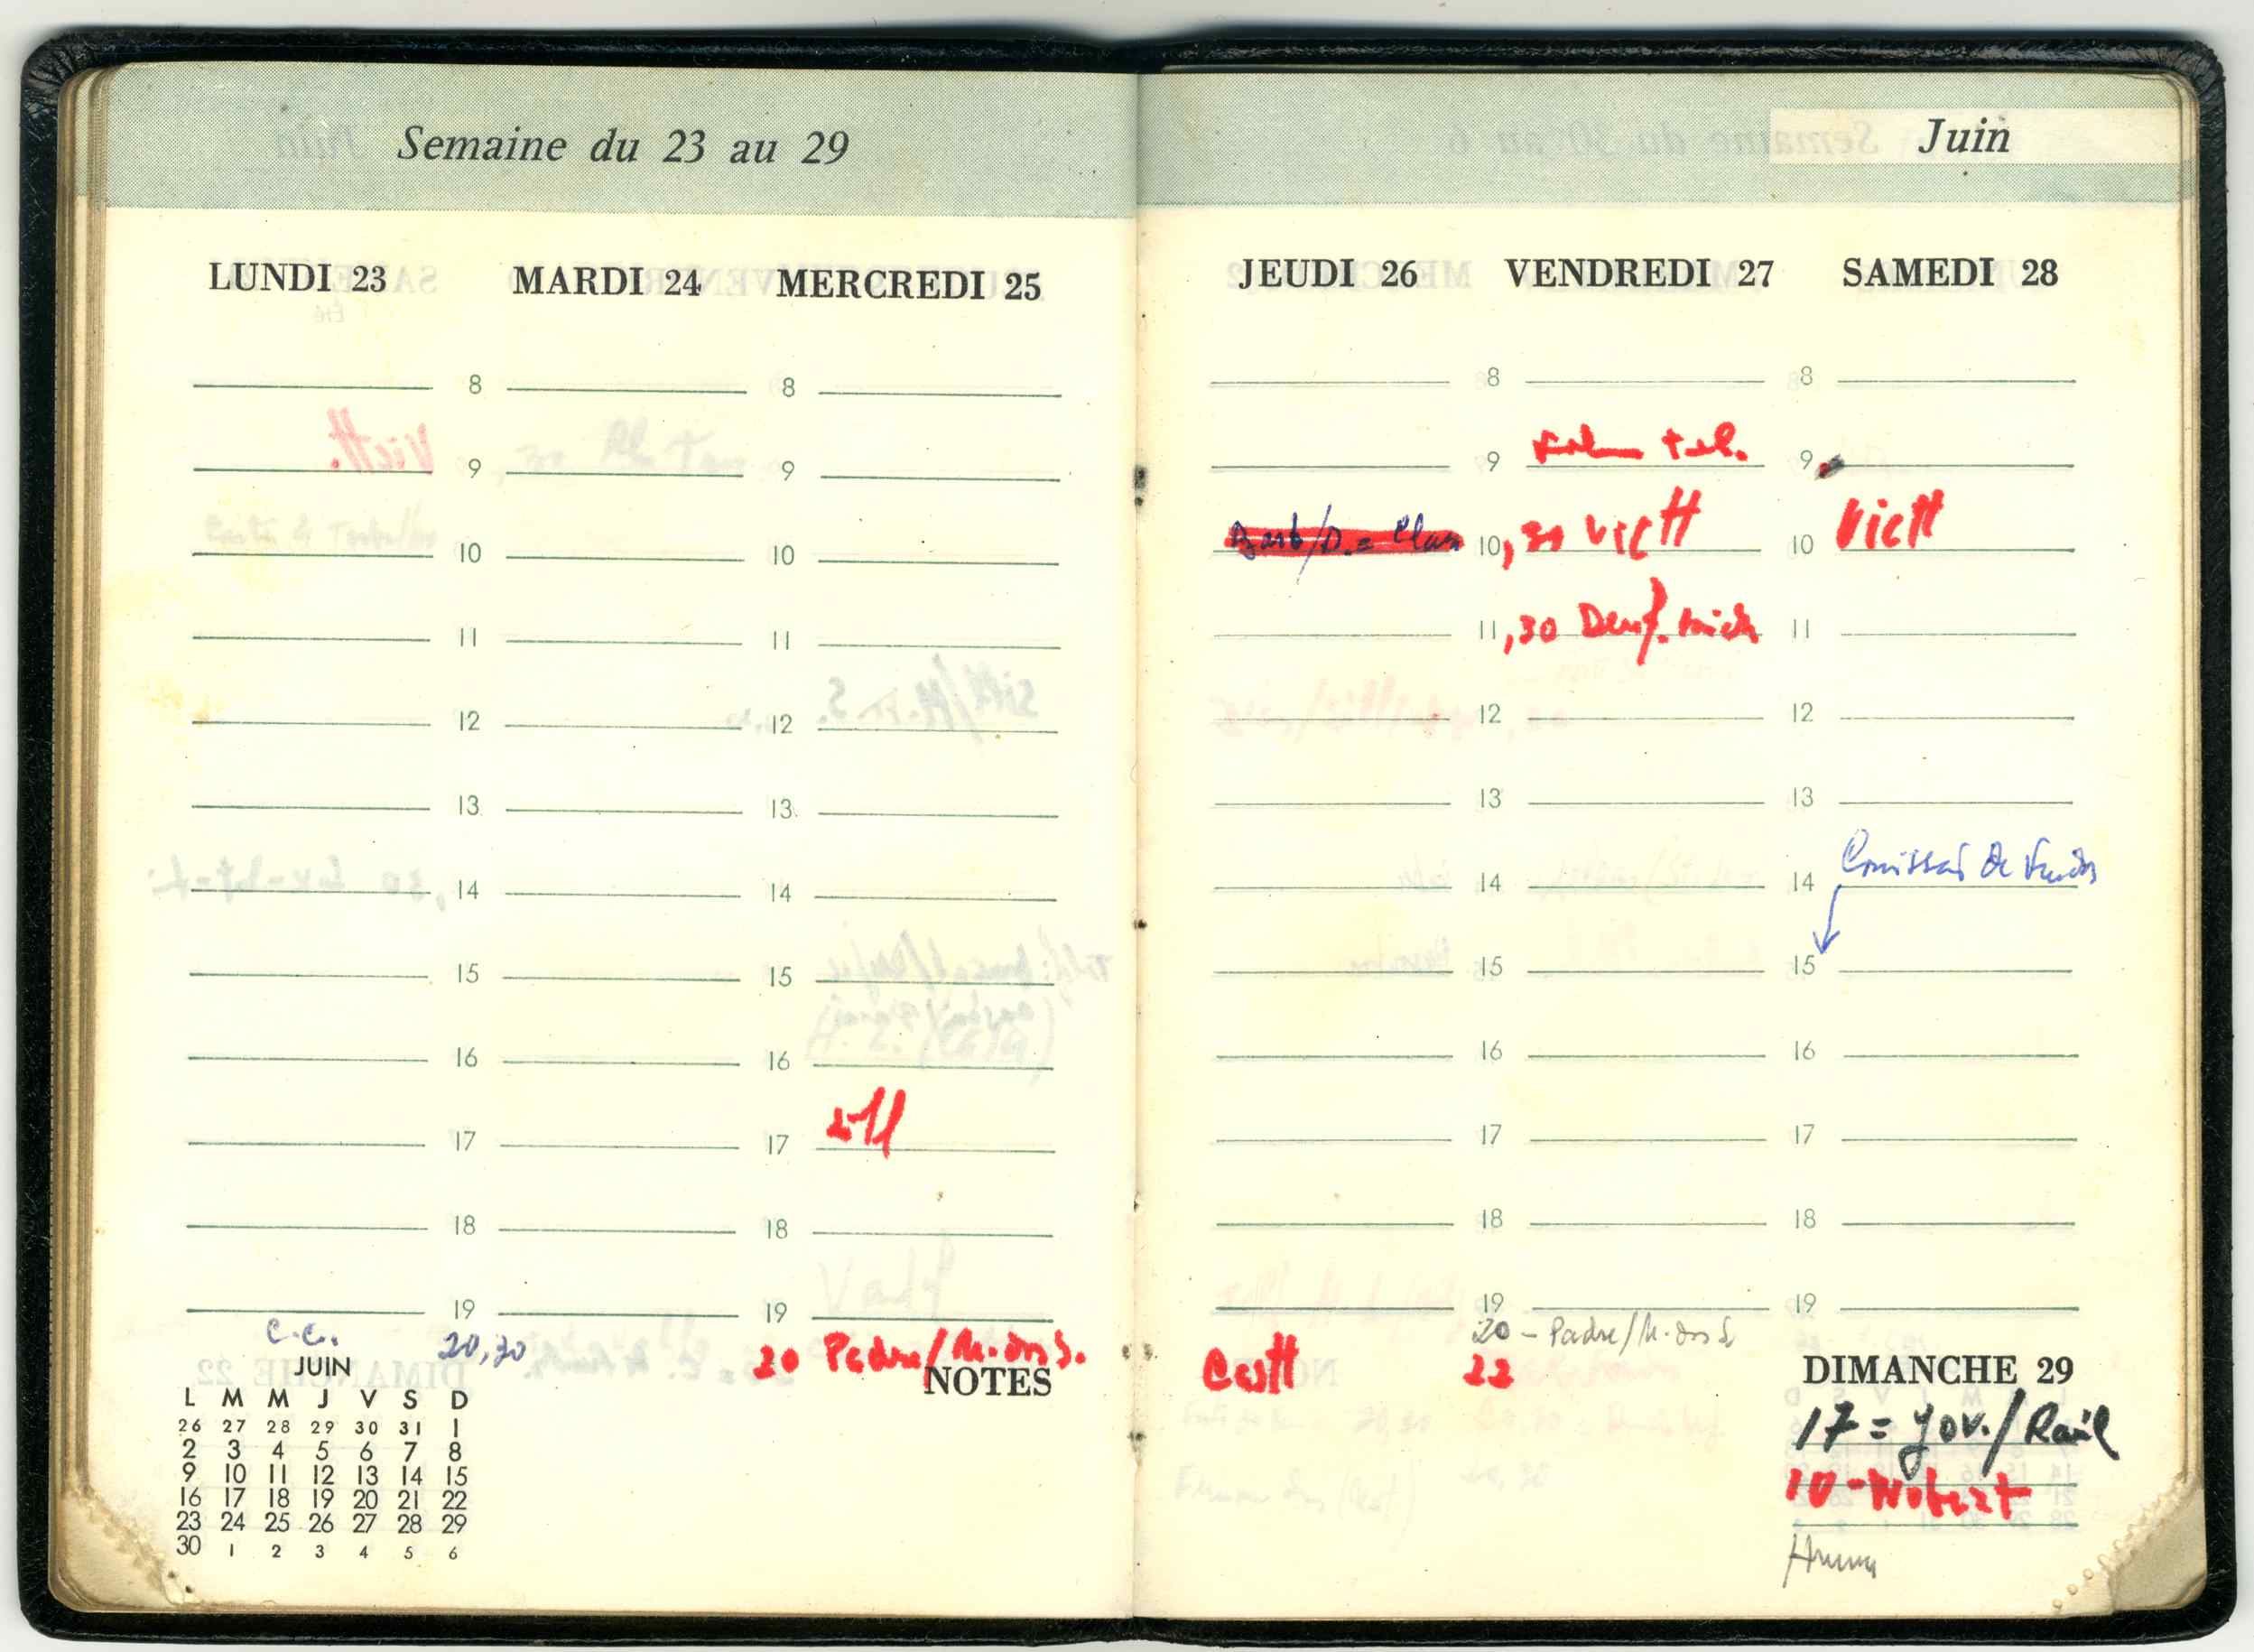 Semaine du 23 au 29
LUNDI 23 MARDI 24 MERCREDI 25
8 8
9 9
10 10
11 11
12 12
13 13
14 14
15 15
16 16
17 17
18 18
19 19
C.C. 20,30 20 Padre/M. dos S.
JUIN
NOTES
L M M J V S D
26 27 28 29 30 31 1
2 3 4 5 6 7 8
9 10 11 12 13 14 15
16 17 18 19 20 21 22
23 24 25 26 27 28 29
30 1 2 3 4 5 6
Juin
JEUDI 26 VENDREDI 27 SAMEDI 28
8 8
9 tel. 9
10,30 Viett 10 Viett
11,30 11
12 12
13 13
14 14
15 15
16 16
17 17
18 18
19 19
20 - Padre/M. dos S.
22
DIMANCHE 29
17 = Jov./Raúl
10 -